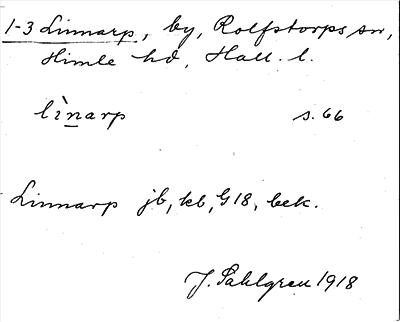 1-3 Linnarp, by, Rolfstorps sn,
Himle hd, Hall. l.
lìnarp s. 66
Linnarp jb, kb, G18, bek.
J. Sahlgren 1918